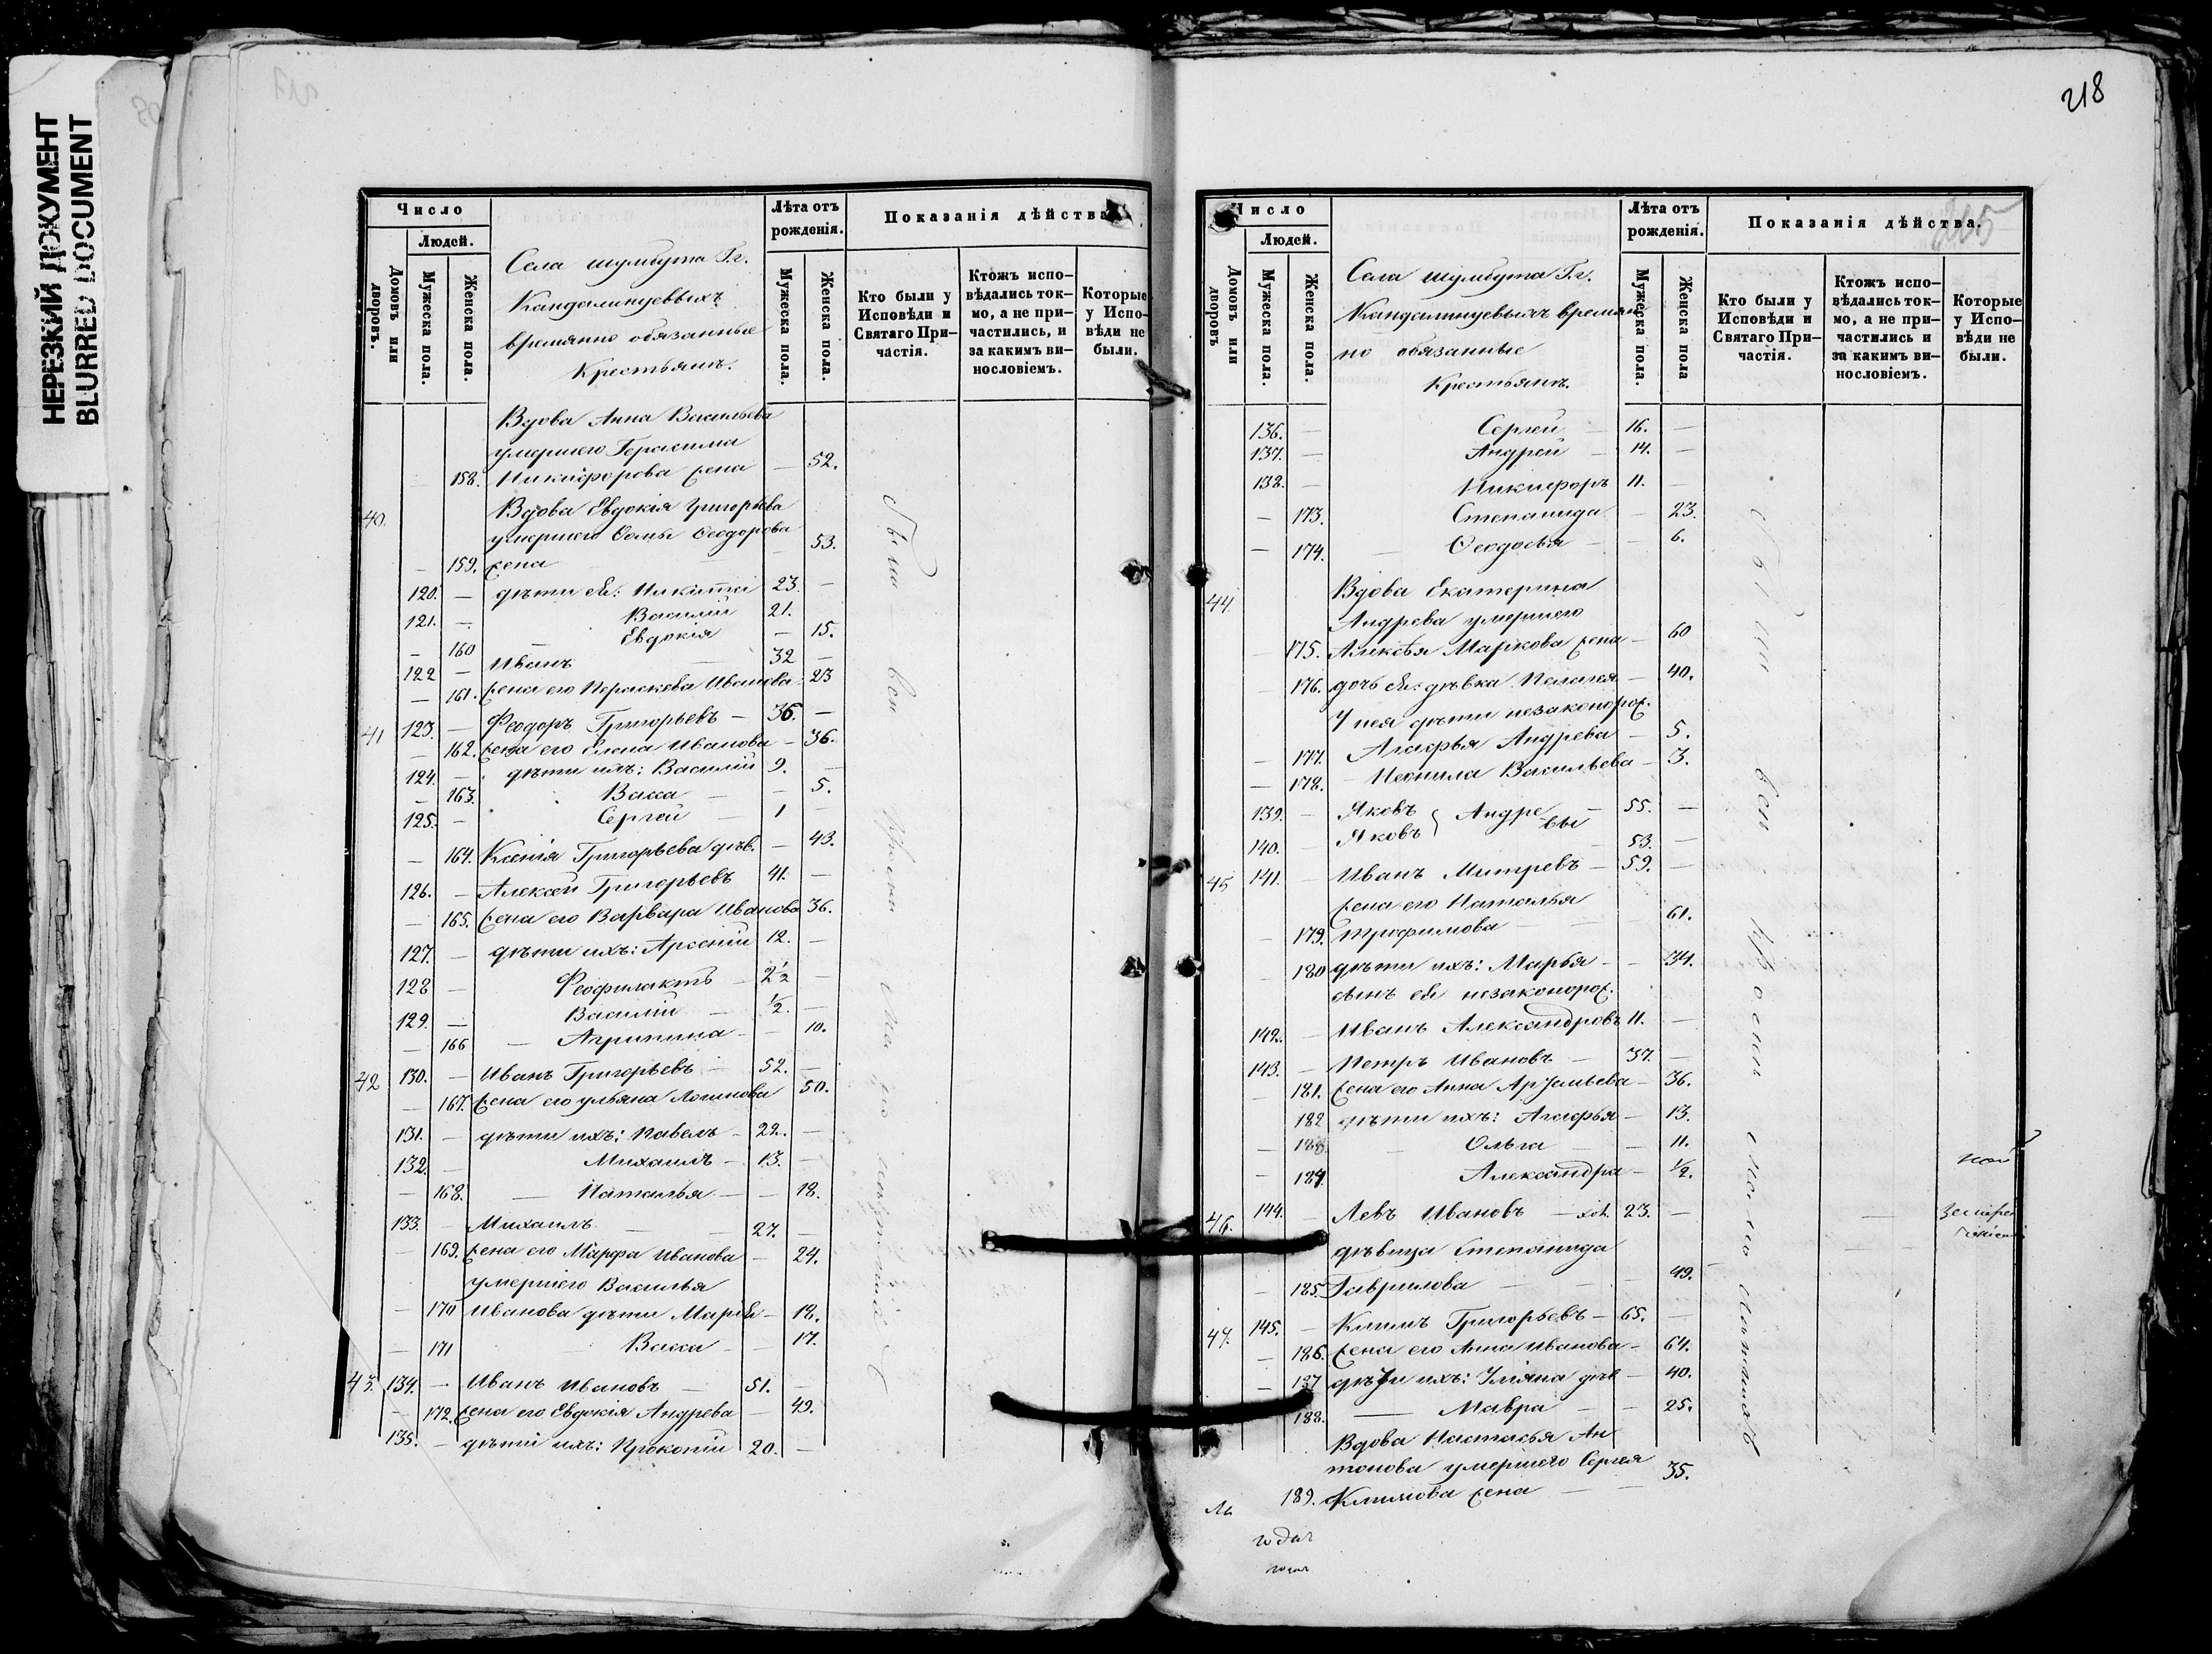 НЕРЕЗКИЙ ДОКУМЕНТ
BLURRED DOCUMENT
Число
Людей.
Домовъ или дворовъ.
Мужеска пола.
Женска пола.
Села Шумбута Г.г.
Кандалинцеввыхъ
времянно обязанные
Крестьянъ.
Лѣта отъ рожденія.
Мужеска пола.
Женска пола.
Показанія дѣйства
Кто были у Исповѣди и Святаго Причастія.
Ктожъ исповѣдались токмо, а не причастились, и за какимъ винословіемъ.
Которые у Исповѣди не были.
Вдова Анна Васильева
умершего Герасима
158. Никифорова жена — 52.
40. Вдова Евдокія Григорьева
умершего Ѳомы Ѳеодорова
159. жена — 53.
120. — дѣти ея: Никита 23. —
121. — Василій 21.
160 — Евдокія — 15.
122 — Иванъ 32 —
— 161. жена его Пераскева Иванова 23
41 123. — Феодоръ Григорьевъ — 36. —
— 162. жена его Елена Иванова — 36.
124. — дѣти ихъ: Василій 9. —
— 163. Васса — 5.
125. — Сергей — 1 —
— 164. Ксенія Григорьева дѣв. — 43.
126. — Алексей Григорьевъ 41. —
— 165. жена его Варвара Иванова 36.
127. — дѣти ихъ: Арсений 12. —
128 — Феофилактъ — 2 1/2 —
129. — Василий — 1/2. —
— 166 — Агрипина — 10.
42 130. — Иванъ Григорьевъ — 52. —
— 167. жена его ульяна Логинова 50.
131. — дѣти ихъ: Павелъ — 22. —
132. — Михаилъ — 13. —
— 168. — Наталья — 18.
133. — Михаилъ — 27. —
— 169. жена его Марфа Иванова — 24.
умершего Василья
— 170 Иванова дѣти Марія — 18.
— 171 Васса — 17.
43. 134. — Иванъ Ивановъ — 51. —
— 172. жена его Евдокія Андрева — 49.
135. — дѣти ихъ: Прокопій 20. —
218
Число
Людей.
Домовъ или дворовъ
Мужеска пола.
Женска пола.
Села Шумбута Г.г.
Кандалинцевыхъ времян
но обязанные
Крестьянъ.
Лѣта отъ рожденія.
Мужеска пола.
Женска пола
Показанія дѣйства.
Кто были у Исповѣди и Святаго Причастія.
Ктожъ исповѣдались токмо, а не причастились и за какимъ винословіемъ.
Которые у Исповѣди не были.
136. — Сергей — 16. —
137. — Андрей — 14. —
138. — Никифоръ 11. —
— 173. Степанида — 23.
— 174. — Ѳеодосья — 6.
44. Вдова Екатерина
Андрева умершего
— 175. Алексѣя Маркова жена — 60
— 176. дочь ея: дѣвка Пелагея — 40.
У нея дѣти незаконорож.
— 177. Агафья Андрева — 5.
— 178. Неонила Васильева — 3.
139. — Яковъ } Андре — 55. —
140. — Яковъ вы 53. —
45 141. — Иванъ Митревъ — 59. —
жена его Наталья
— 179. трофимова — 61.
— 180 дѣти ихъ: Марья — 34.
сынъ ея незаконорож.
142. — Иванъ Александровъ 11. —
143. — Петръ Ивановъ — 37. —
— 181. жена его Анна — 36.
182 дѣти ихъ: Агафья — 13.
— 183 Ольга — 11.
— 184. Александра — 1/2.
46. 144. — Левъ Ивановъ — 23. —
дѣвица Степанида
— 185. Гаврилова — 49.
47. 145. — Климъ Григорьевъ — 65. —
— 186. жена его Анна Иванова — 64.
— 187 дѣти ихъ: Уліана дѣв — 40.
188. — Мавра — 25.
Вдова Настасья Ан
тонова умершего Сергея
189. Климова жена — 35.